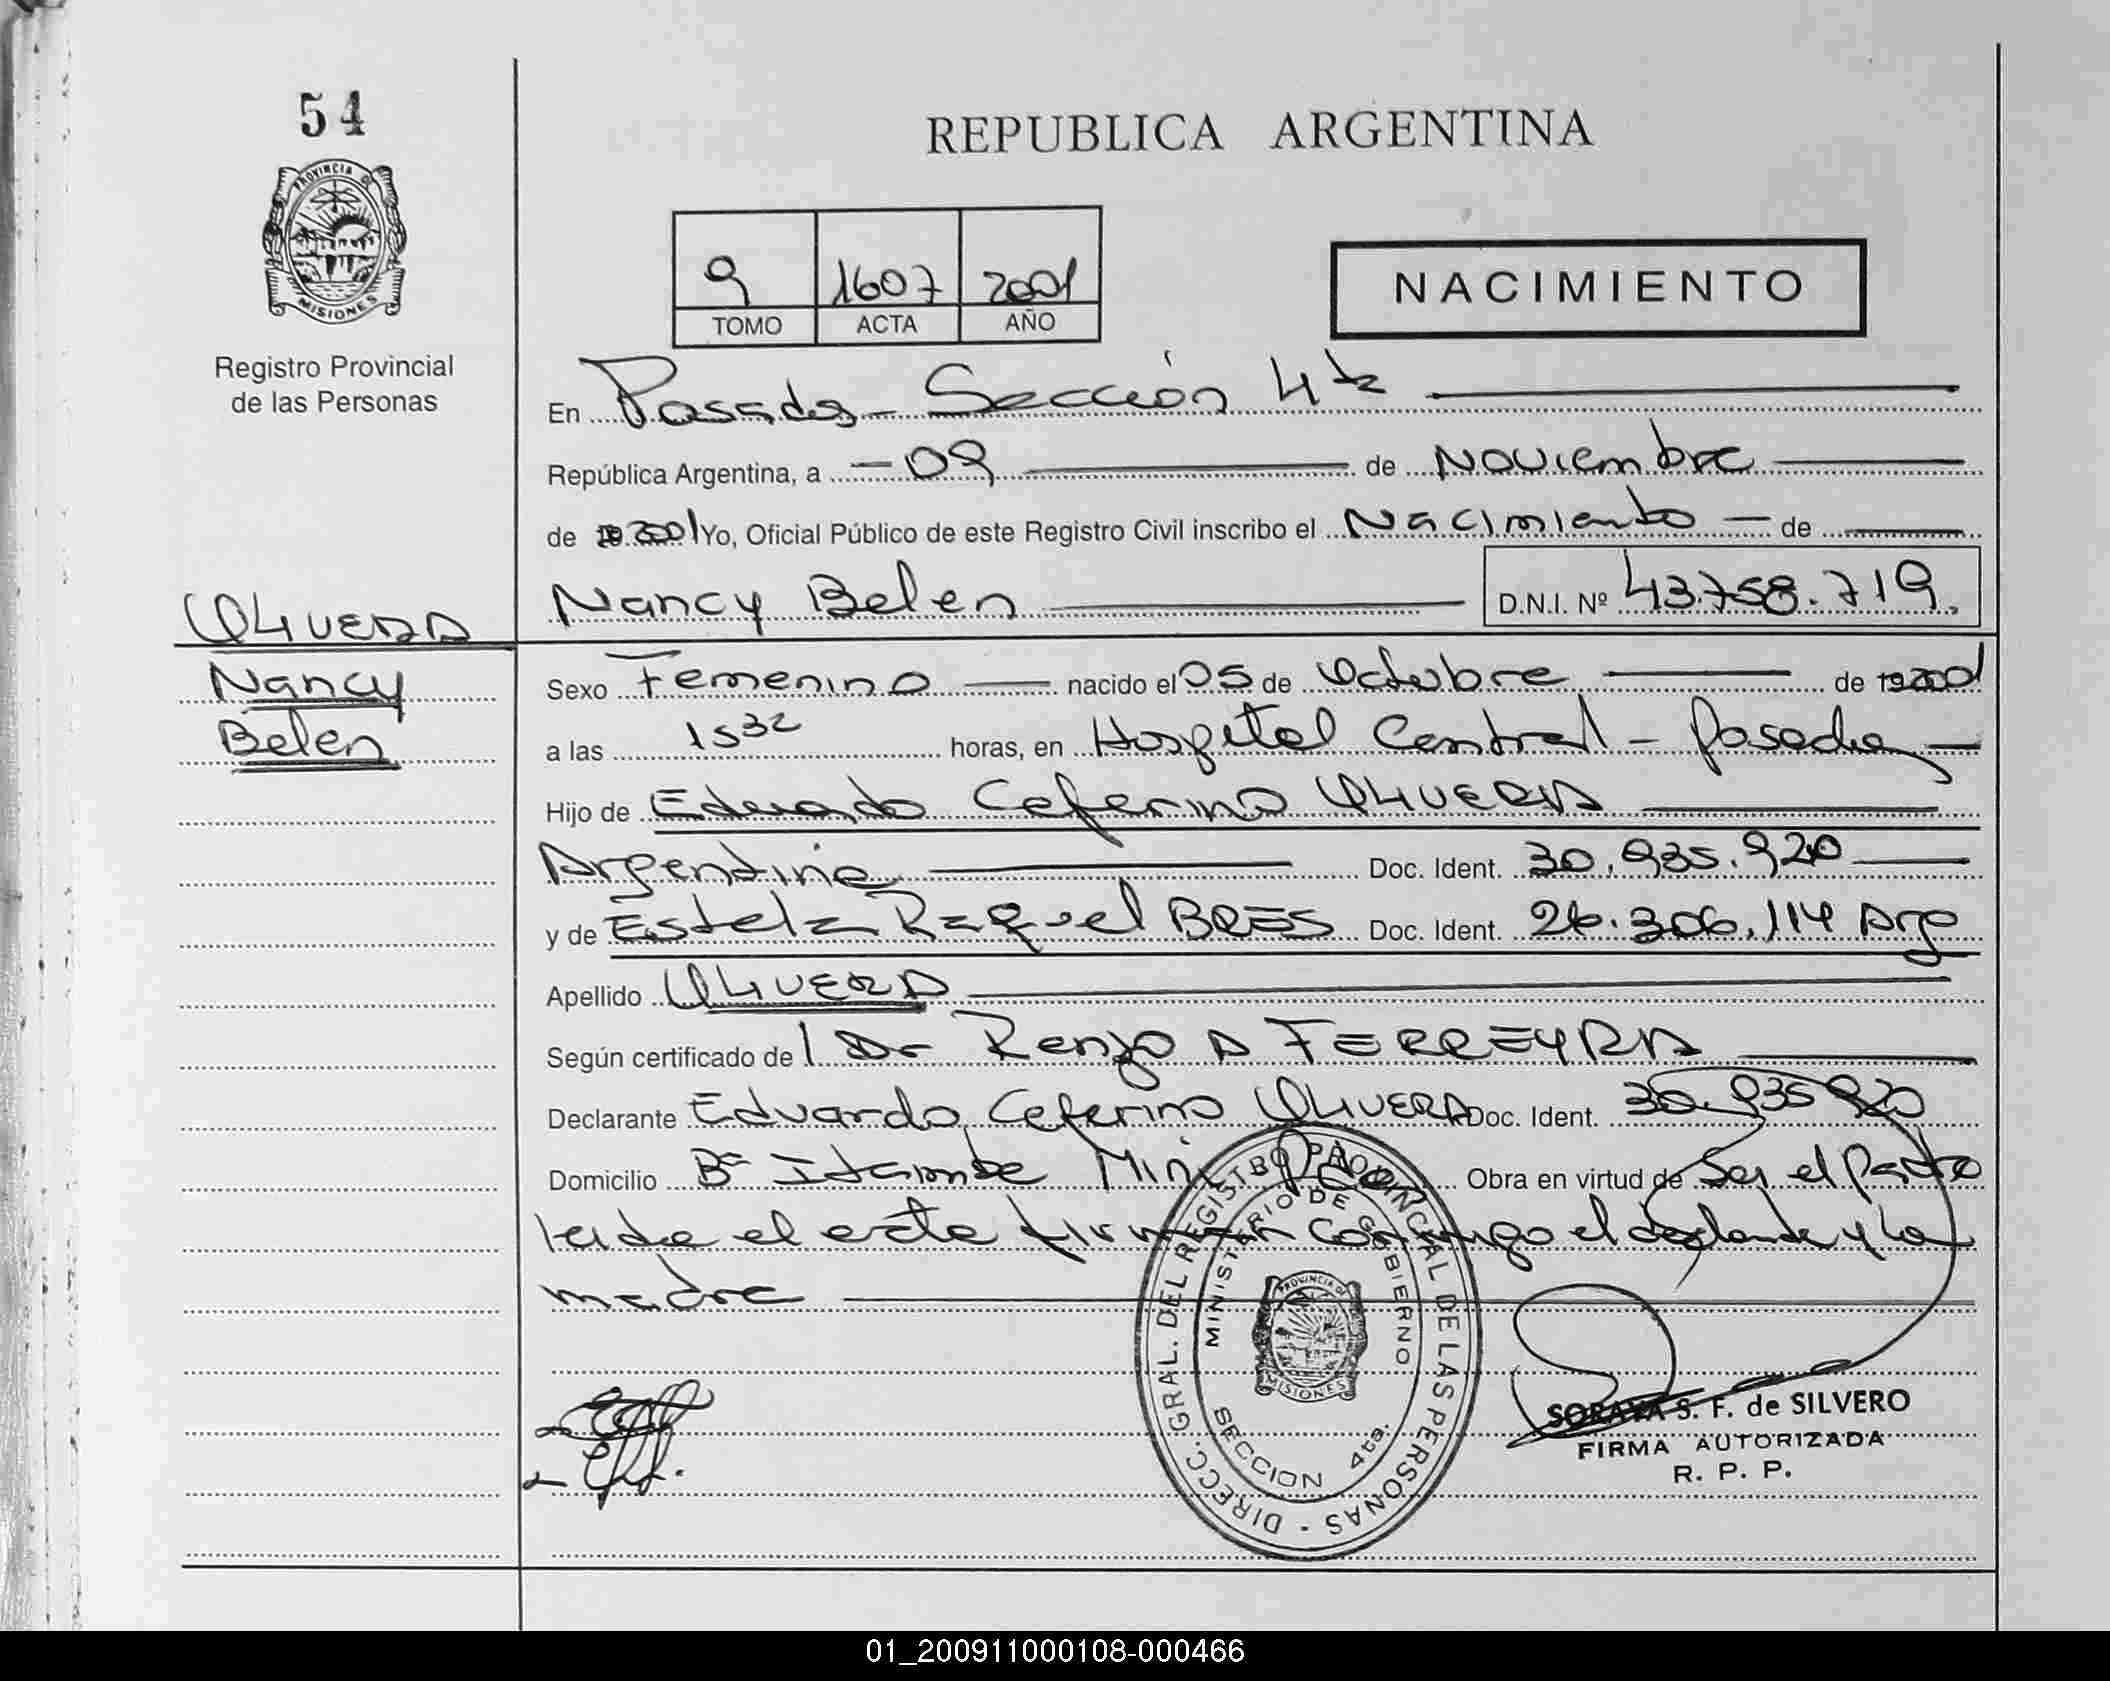 54
PROVINCIA DE
MISIONES
Registro Provincial
de las Personas
REPUBLICA ARGENTINA
9 1607 2001
TOMO ACTA AÑO
NACIMIENTO
En Posadas - Sección 4ta
República Argentina, a - 09 de Noviembre
de 2001 Yo, Oficial Público de este Registro Civil inscribo el Nacimiento - de
Nancy Belen D.N.I. Nº 43.758.719.
OLIVERA
Nancy
Belen
Sexo Femenino nacido el 05 de Octubre de 2001
a las 1532 horas, en Hospital Central - Posadas -
Hijo de Eduardo Ceferino OLIVERA
Argentina Doc. Ident. 30.935.920
y de Estela Raquel BRES Doc. Ident. 26.306.114 Arg
Apellido OLIVERA
Según certificado de l Dr Renzo A FERREYRA
Declarante Eduardo Ceferino OLIVERA Doc. Ident. 30.935.920
Domicilio Bº Itaembe Mini Obra en virtud de Ser el Padre
leida el acta firman conmigo el declarante y la
madre
DIRECC. GRAL. DEL REGISTRO PROVINCIAL DE LAS PERSONAS -
MINISTERIO DE GOBIERNO
PROVINCIA DE
MISIONES
SECCION 4ta.
SORAYA S. F. de SILVERO
FIRMA AUTORIZADA
R. P. P.
01_200911000108-000466